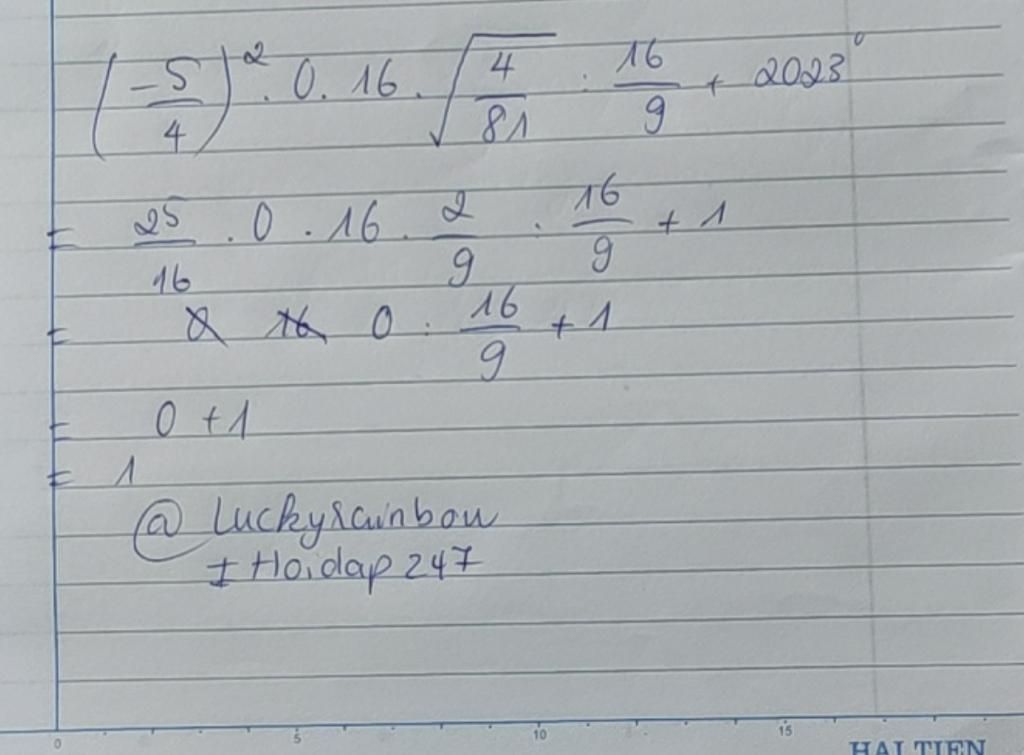 (-5/4)² . 0 . 16 . √(4/81) : 16/9 + 2023⁰
= 25/16 . 0 . 16 . 2/9 : 16/9 + 1
= 0 16 0 : 16/9 + 1
= 0 + 1
= 1
@ Luckyrainbow
± Hoidap 247
0 5 10 15
HẢI TIẾN